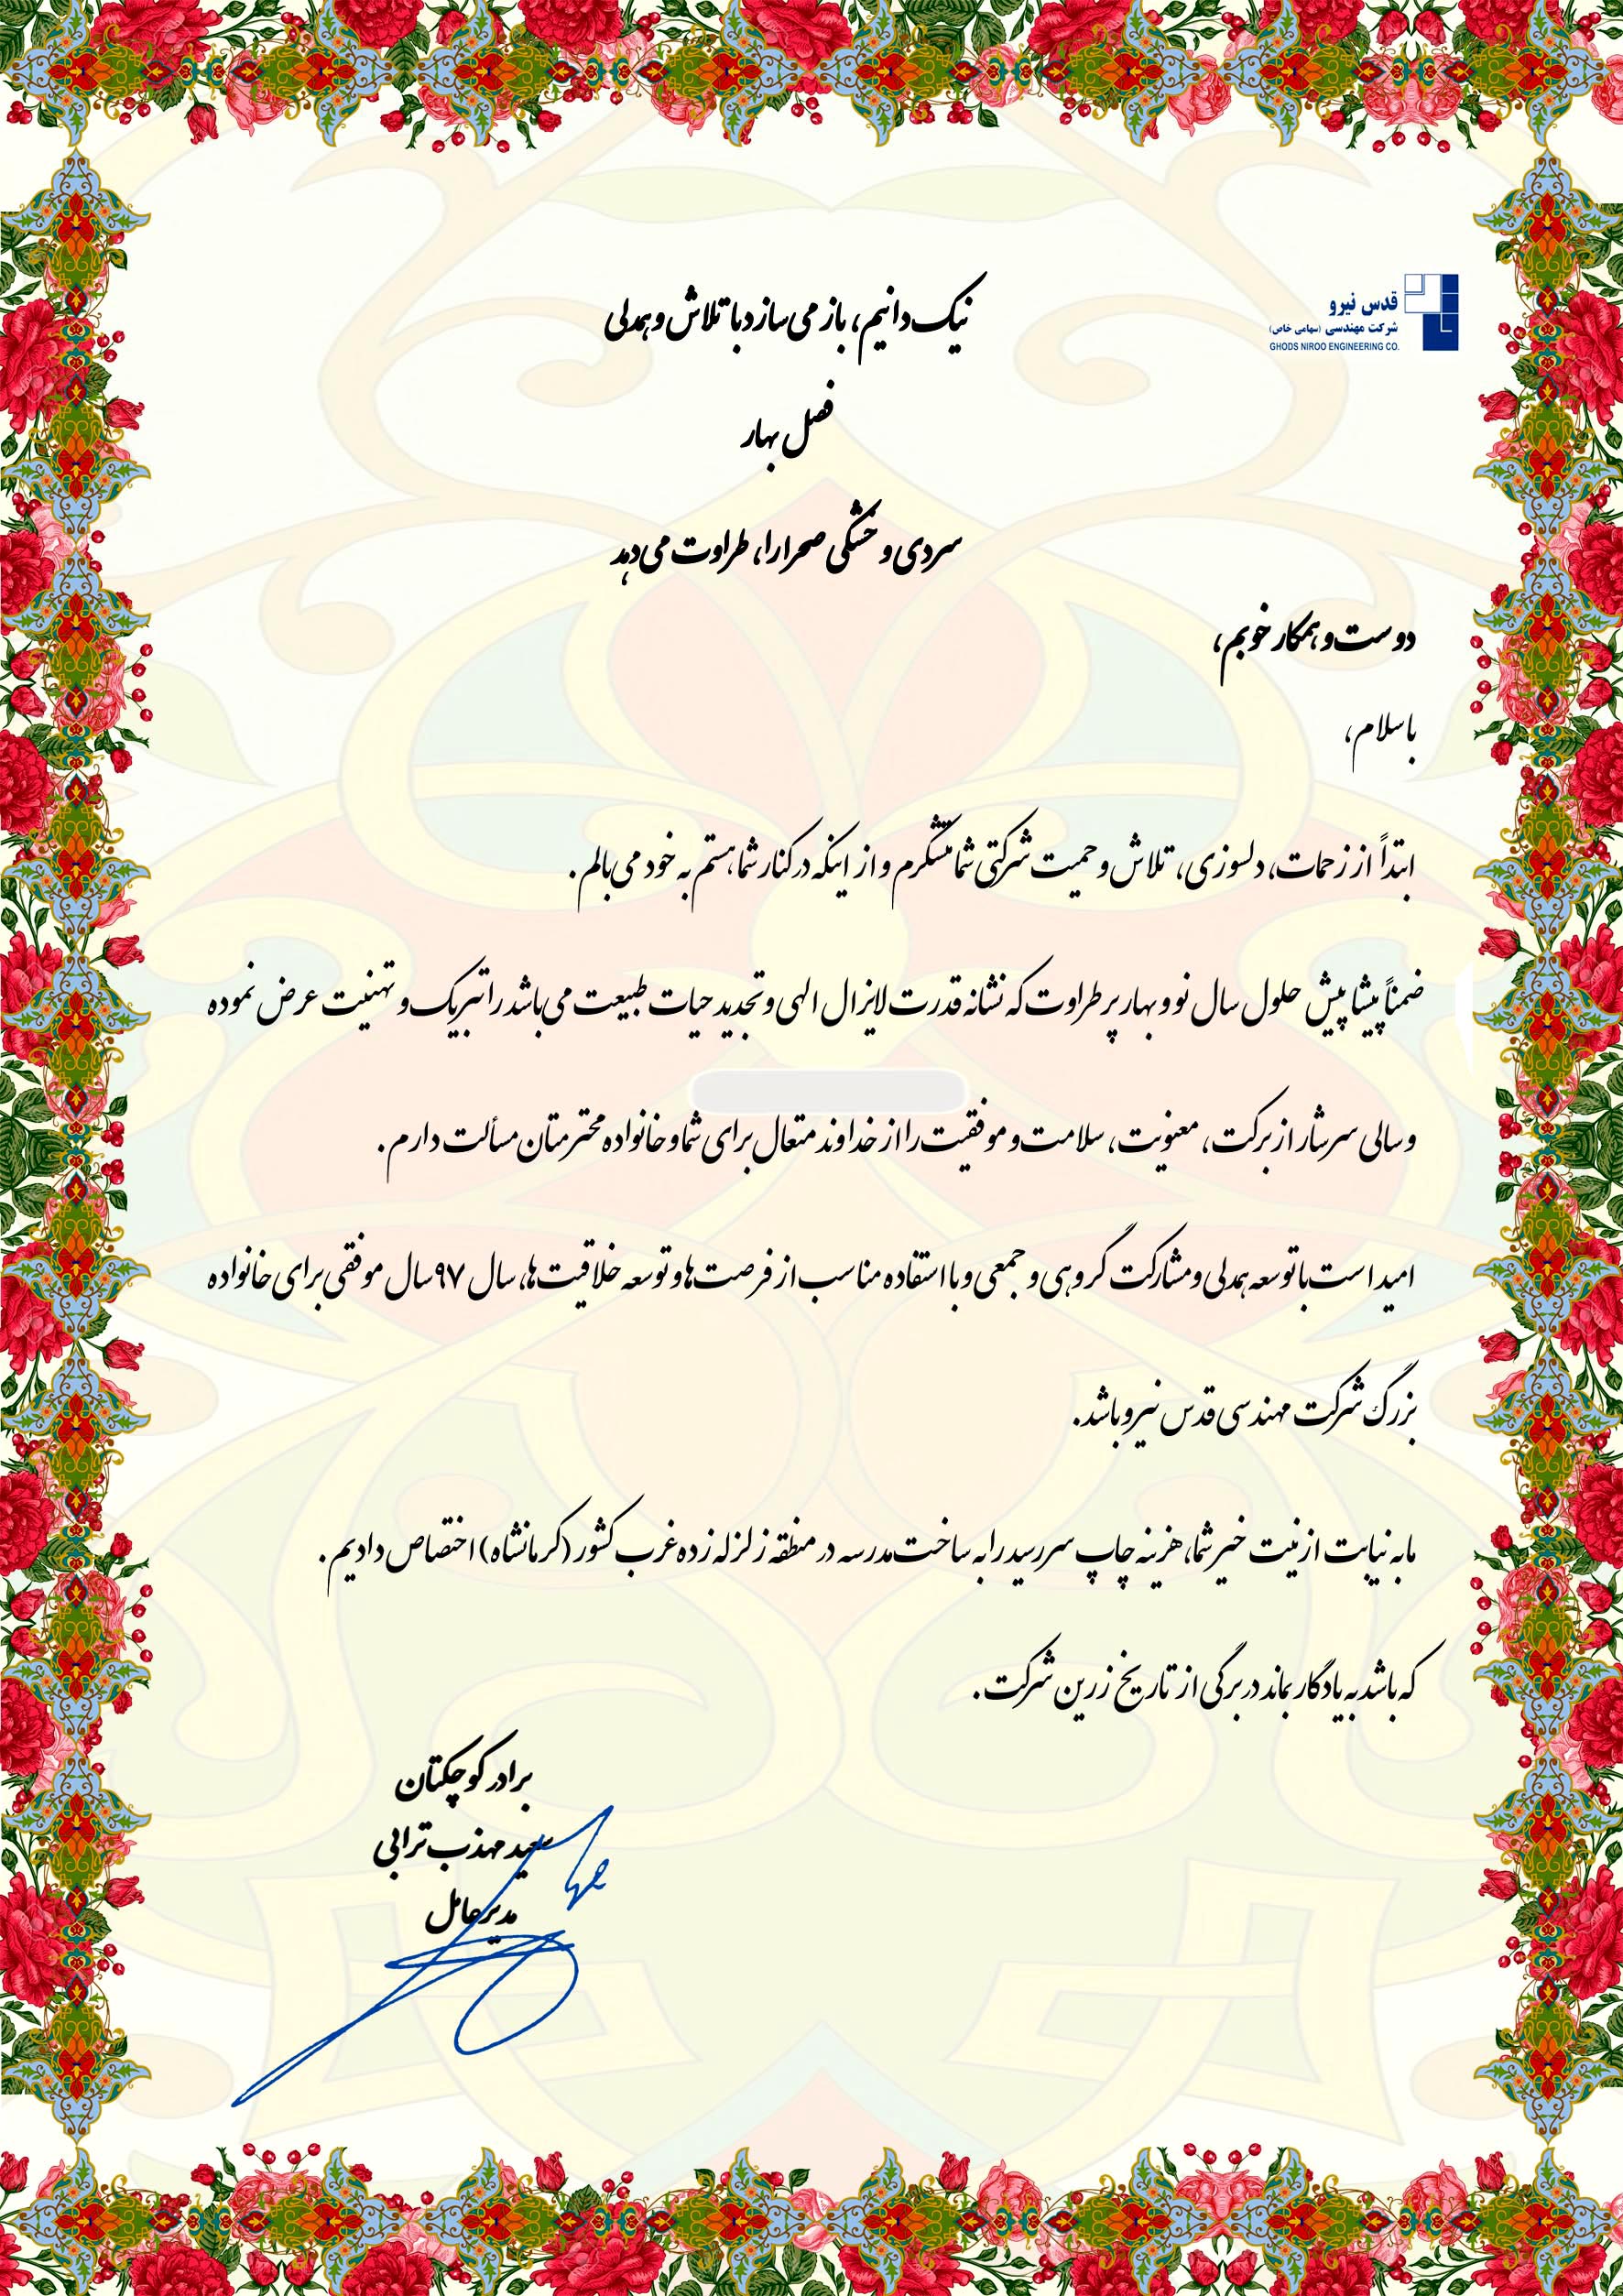 قدس نیرو
شرکت مهندسی (سهامی خاص)
GHODS NIROO ENGINEERING CO.
نیک دانیم، باز می سازد با تلاش و همدلی
فصل بهار
سردی و خشکی صحرا را، طراوت می دهد
دوست و همکار خوبم،
با سلام،
ابتداً از زحمات، دلسوزی، تلاش و حمیت شرکتی شما متشکرم و از اینکه در کنار شما هستم به خود می بالم.
ضمناً پیشاپیش حلول سال نو و بهار پر طراوت که نشانه قدرت لایزال الهی و تجدید حیات طبیعت می باشد را تبریک و تهنیت عرض نموده
و سالی سرشار از برکت، معنویت، سلامت و موفقیت را از خداوند متعال برای شما و خانواده محترمتان مسألت دارم.
امید است با توسعه همدلی و مشارکت گروهی و جمعی و با استفاده مناسب از فرصت ها و توسعه خلاقیت ها، سال ۹۷ سال موفقی برای خانواده
بزرگ شرکت مهندسی قدس نیرو باشد.
ما به نیابت از نیت خیر شما، هزینه چاپ سررسید را به ساخت مدرسه در منطقه زلزله زده غرب کشور (کرمانشاه) اختصاص دادیم.
که باشد به یادگار بماند در برگی از تاریخ زرین شرکت.
برادر کوچکتان
سعید مهذب ترابی
مدیرعامل